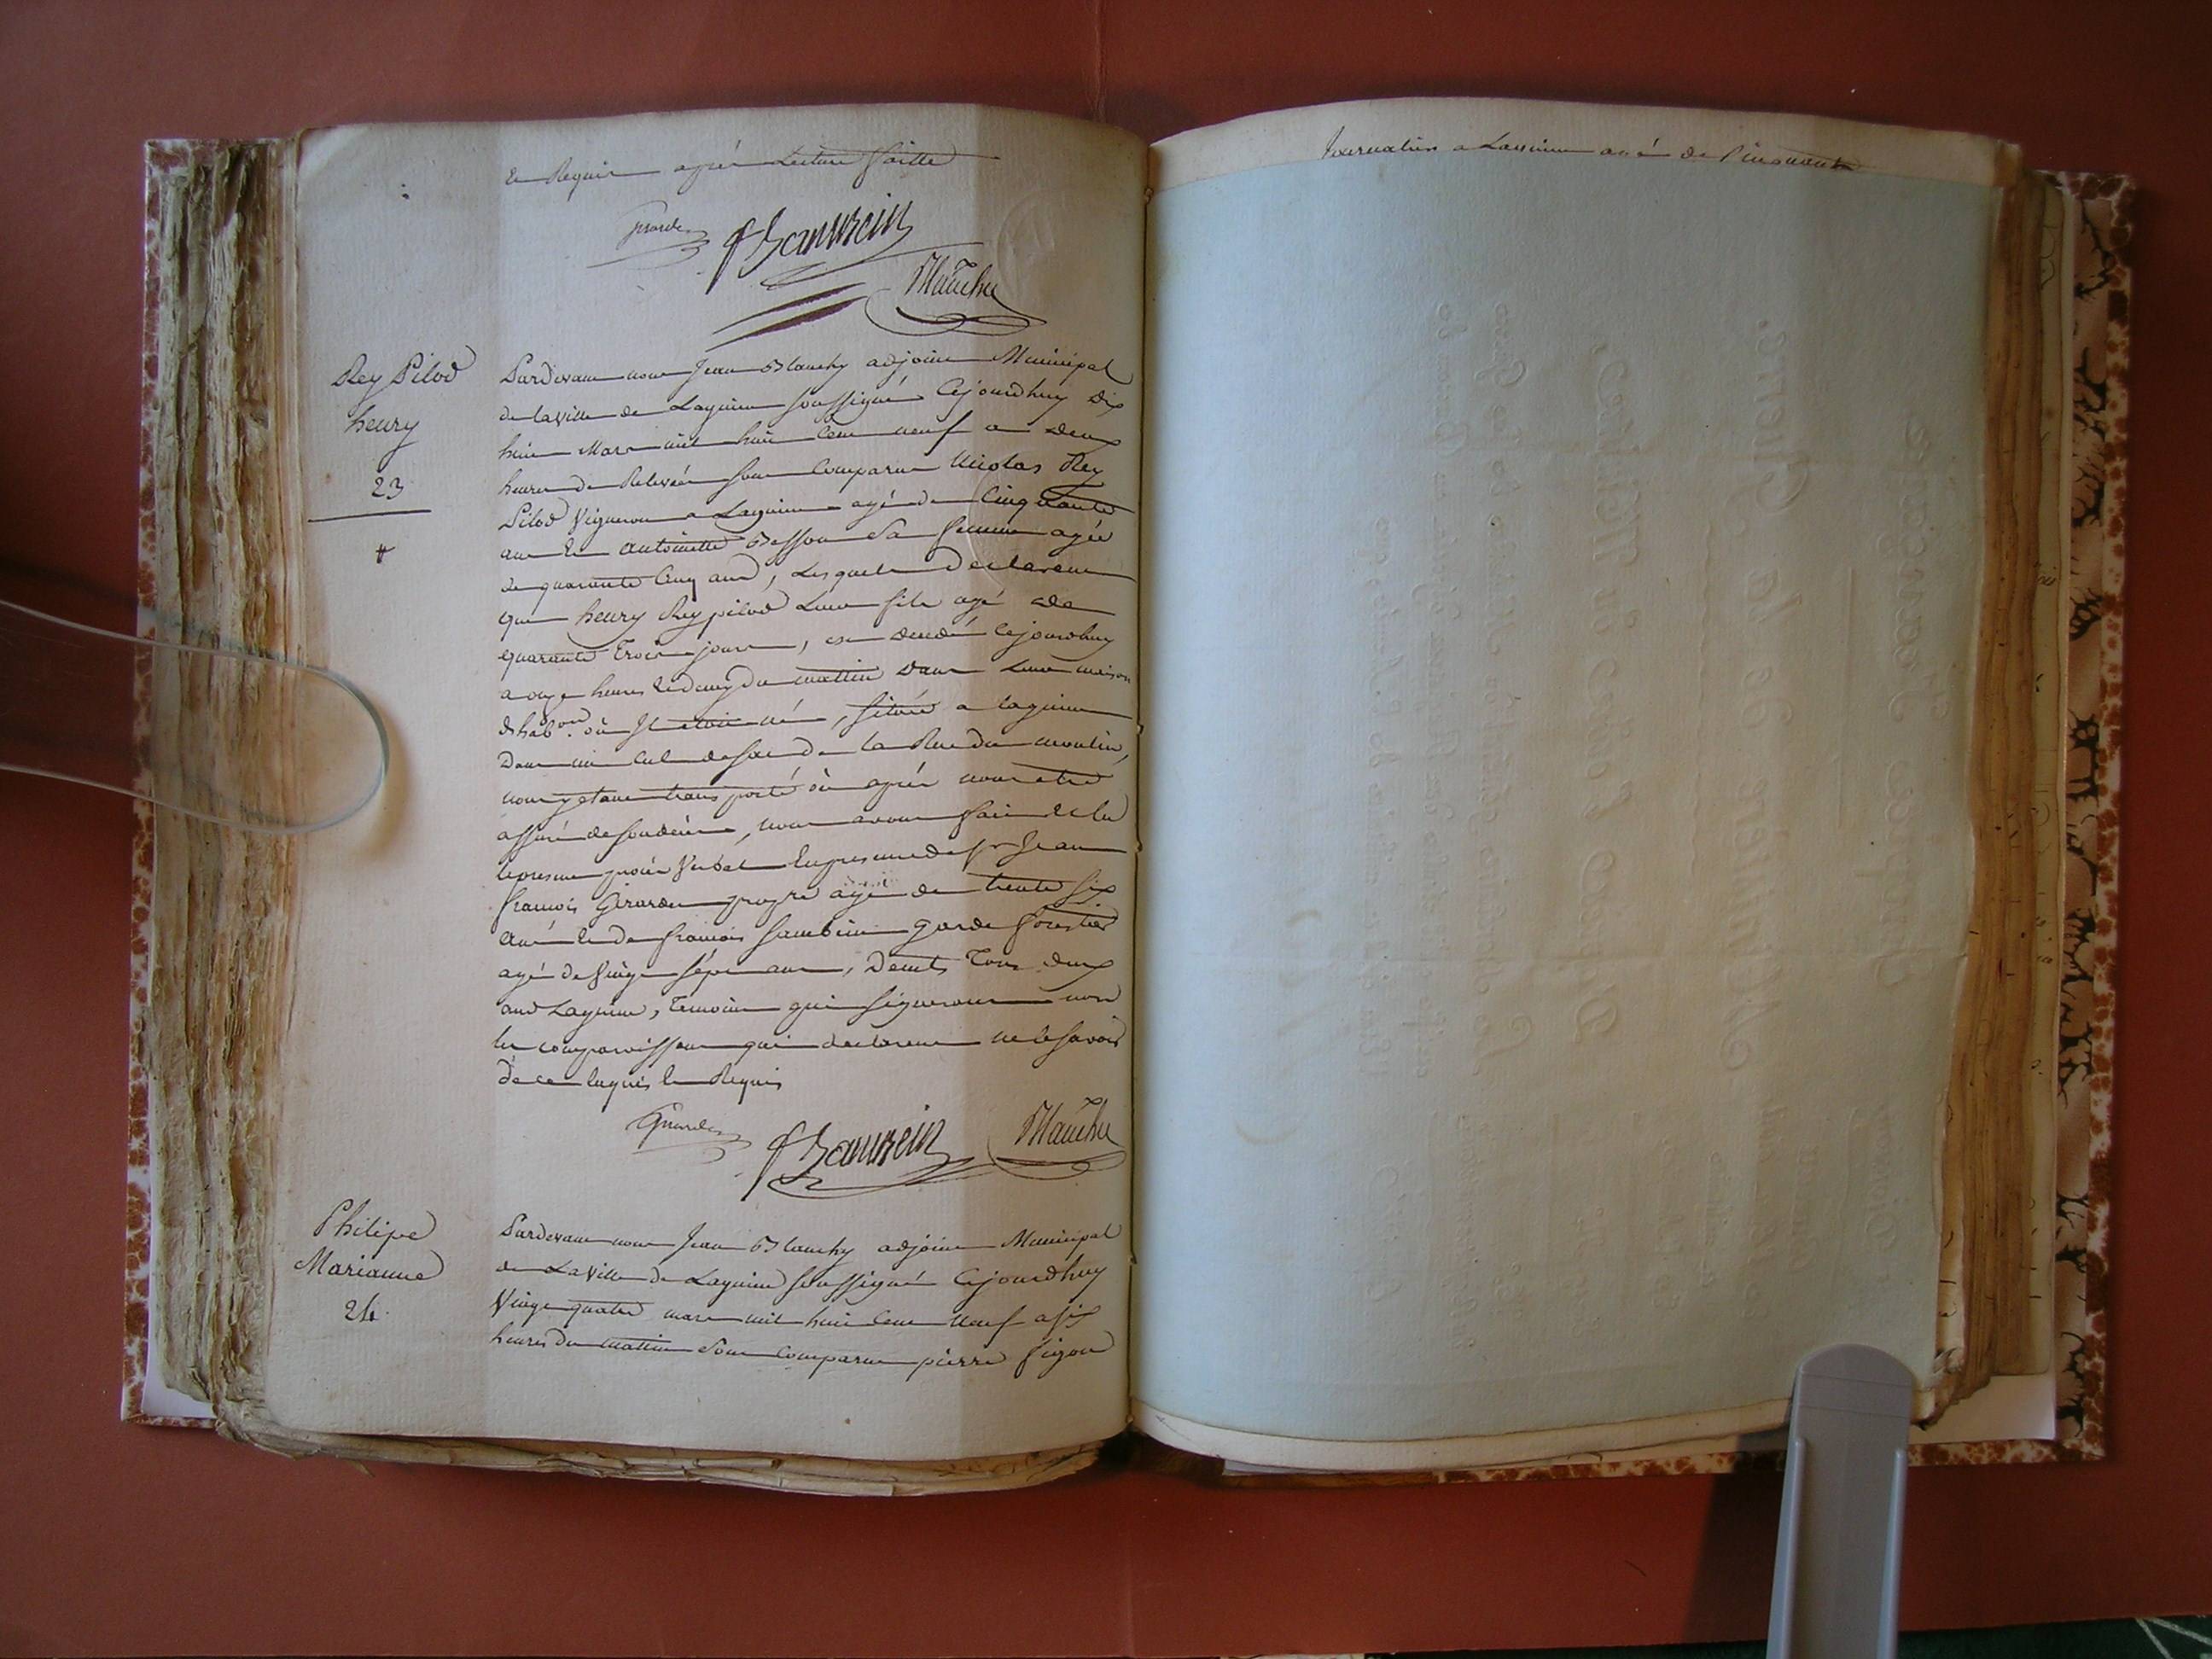 et Requis après Lecture faitte
Girardet
f Sambein
Blanchy
Rey Pilod
henry
23
Pardevant nous Jean Blanchy adjoint Municipal
de la ville de Lagnieu soussigné Cejourdhuy dix
huit Mars mil huit Cent neuf a deux
heures de Relevée sont Comparut Nicolas Rey
Pilod Vigneron a Lagnieu agé de Cinquante
ans et antoinette Besson Sa femme agée
de quarante Cinq ans, Lesquels declarent
que henry Rey pilod Leur fils agé de
quarante Trois jours, est decedé Cejourdhuy
a onze heures et demy du mattin dans Leur maison
d'hab.on où Il etoit né, située a lagnieu
Dans un Cul de sac de la Rue du moulin,
nous y etant transporté où après nous etre
assuré de son decès, nous avons fait et lu
le present procès Verbal En presence de Sr Jean
françois Girardet propre agé de trente six
ans et de françois Sambein garde forestier
agé de Vingt sept ans, demts Tous deux
aud Lagnieu, Temoins qui signeront non
les comparoissant qui declarent ne le savoir
de ce Enquis et Requis
Girardet
f Sambein
Blanchy
Philipe
Marianne
24
Pardevant nous Jean Blanchy adjoint Municipal
de La Ville de Lagnieu soussigné Cejourdhuy
Vingt quatre mars mil huit Cent neuf a six
heures du mattin sont Comparut pierre
a Lagnieu agé de Cinquante